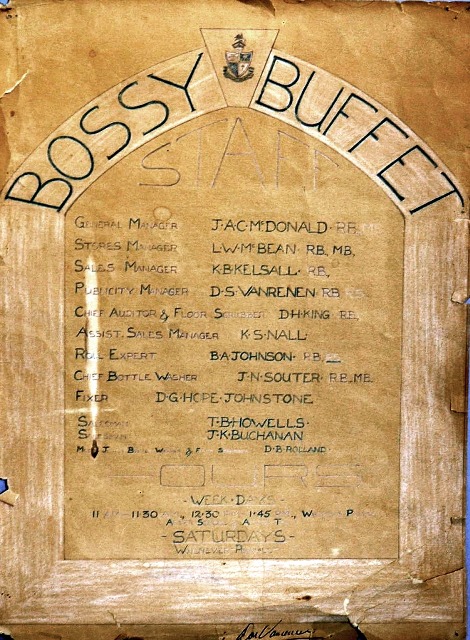 BOSSY BUFFET
STAFF
GENERAL MANAGER J·A·C·McDONALD· R.B, M.B.
STORES MANAGER L·W·McBEAN· R.B, M.B,
SALES MANAGER K·B·KELSALL· R.B,
PUBLICITY MANAGER D·S·VANRENEN· R.B
CHIEF AUDITOR & FLOOR SCRUBBER D·H·KING· R.B,
ASSIST. SALES MANAGER K·S·NALL·
ROLL EXPERT B·A·JOHNSON· R.B.
CHIEF BOTTLE WASHER J·N·SOUTER· R.B, M.B.
FIXER D·G·HOPE·JOHNSTONE
SALESMAN T·B·HOWELLS·
SALESMAN J·K·BUCHANAN
D·B·ROLLAND·
HOURS
- WEEK·DAYS -
11 11·30 12·30 1·45
- SATURDAYS -
WHENEVER